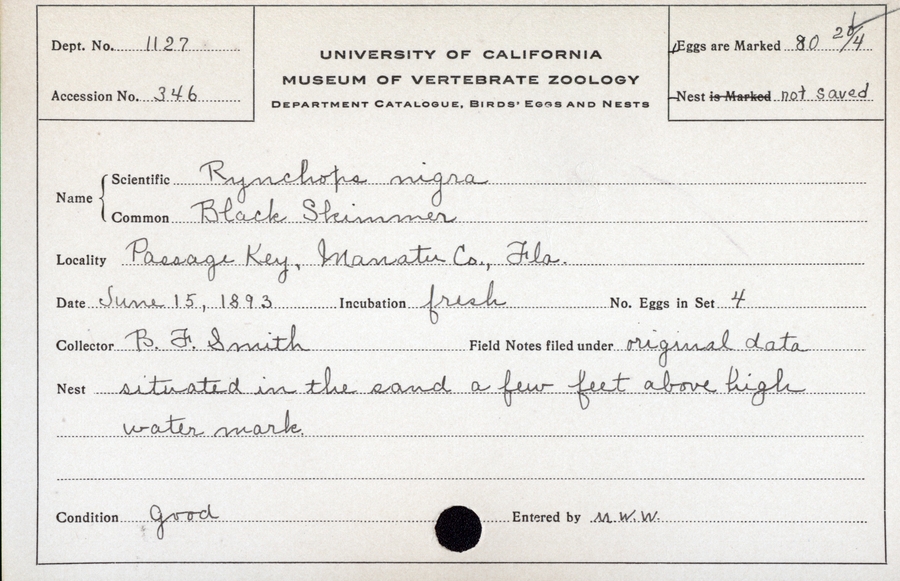 Dept. No. 1127
Accession No. 346
UNIVERSITY OF CALIFORNIA
MUSEUM OF VERTEBRATE ZOOLOGY
DEPARTMENT CATALOGUE, BIRDS' EGGS AND NESTS
Eggs are Marked 80 20/4
Nest is Marked not saved
Name
Scientific Rynchops nigra
Common Black Skimmer
Locality Passage Key, Manatee Co., Fla.
Date June 15, 1893 Incubation fresh No. Eggs in Set 4
Collector B. F. Smith Field Notes filed under original data
Nest situated in the sand a few feet above high
water mark.
Condition good Entered by M.W.W.